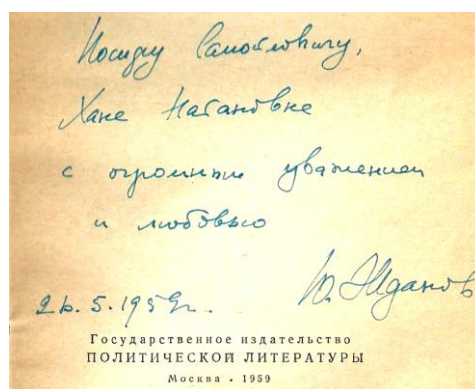 Иосифу Самойловичу,
Хане Натановне
с огромным уважением
и любовью
26.5.1959г.
Ю. Жданов
Государственное издательство
ПОЛИТИЧЕСКОЙ ЛИТЕРАТУРЫ
Москва • 1959